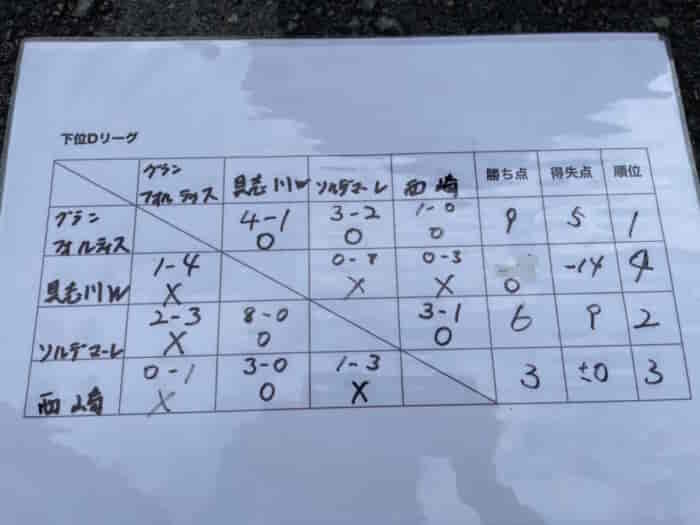 下位Dリーグ
グラン
フォルティス 具志川W ソルデマーレ 西崎 勝ち点 得失点 順位
グラン
フォルティス 4-1 ○ 3-2 ○ 1-0 ○ 9 5 1
具志川W 1-4 X 0-8 X 0-3 X 0 -14 4
ソルデマーレ 2-3 X 8-0 ○ 3-1 ○ 6 9 2
西崎 0-1 X 3-0 ○ 1-3 X 3 ±0 3